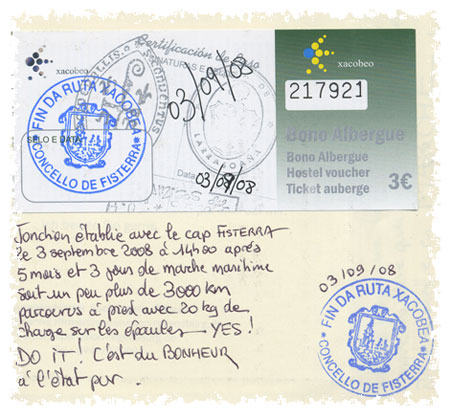 xacobeo
Certificación de Paso
03/09/08
FIN DA RUTA XACOBEA
CONCELLO DE FISTERRA
SELO E DATA
LARRASOAÑA
Data
03/09/08
xacobeo
217921
Bono Albergue
Bono Albergue
Hostel voucher
Ticket auberge
3€
Jonction établie avec le cap FISTERRA
le 3 septembre 2008 à 14h00 après
5 mois et 3 jours de marche maritime
soit un peu plus de 3000 km
parcourus à pied avec 20 kg de
charge sur les épaules - YES!
DO IT! C'est du BONHEUR
à l'état pur.
03/09/08
FIN DA RUTA XACOBEA
CONCELLO DE FISTERRA